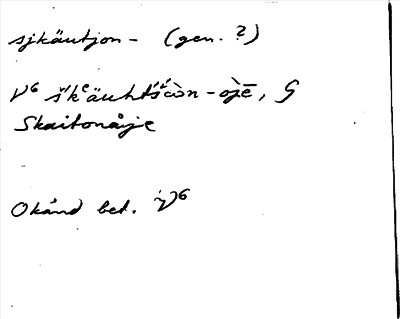 sjkäutjon- (gen. ?)
V⁶ š́kᵉäuht́śc̀òn-òjē, G
Skaitonåije
Okänd bet. V⁶